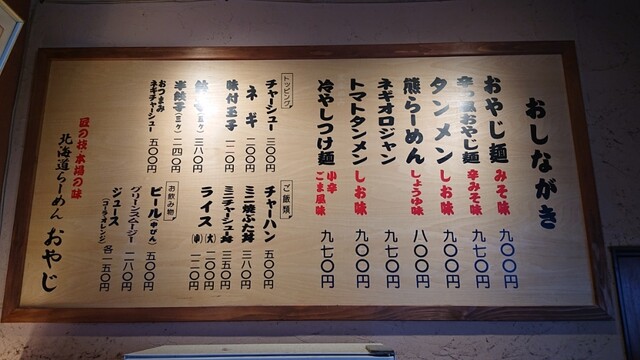 おしながき
おやじ麺 みそ味 九〇〇円
辛っ風おやじ麺 辛みそ味 九七〇円
タンメン しお味 九〇〇円
熊らーめん しょうゆ味 八〇〇円
ネギオロジャン 九七〇円
トマトタンメン しお味 九〇〇円
冷やしつけ麺 小辛 ごま風味 九七〇円
トッピング
チャーシュー 三〇〇円
ネギ 二〇〇円
味付玉子 一二〇円
餃子(五ヶ) 三八〇円
半餃子(三ヶ) 二四〇円
おつまみ
ネギチャーシュー 五〇〇円
ご飯類
チャーハン 五〇〇円
ミニ焼ぶた丼 三八〇円
ミニチャーシュー丼 三五〇円
ライス(大) 二〇〇円
(中) 一二〇円
お飲み物
ビール(中びん) 五〇〇円
グリーンスムージー 二八〇円
ジュース 各一五〇円
(コーラ・オレンジ)
匠の技・本場の味
北海道らーめん おやじ